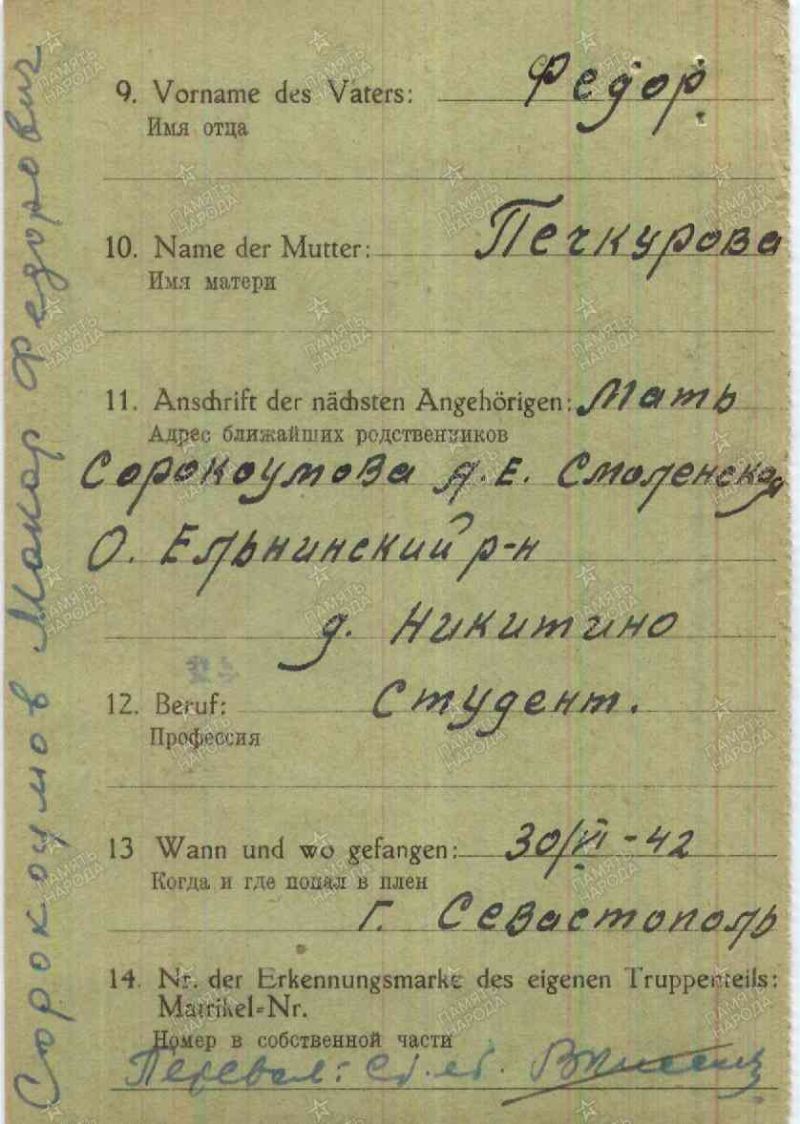 Сорокоумов Макар Федорович
9. Vorname des Vaters: Федор
Имя отца
10. Name der Mutter: Печкурова
Имя матери
11. Anschrift der nächsten Angehörigen: Мать
Адрес ближайших родственников
Сорокоумова А.Е. Смоленская
О. Ельнинский р-н
д. Никитино
12. Beruf: Студент.
Профессия
13 Wann und wo gefangen: 30/VI-42
Когда и где попал в плен
г. Севастополь
14. Nr. der Erkennungsmarke des eigenen Truppenteils:
Matrikel-Nr.
Номер в собственной части
Перевел: